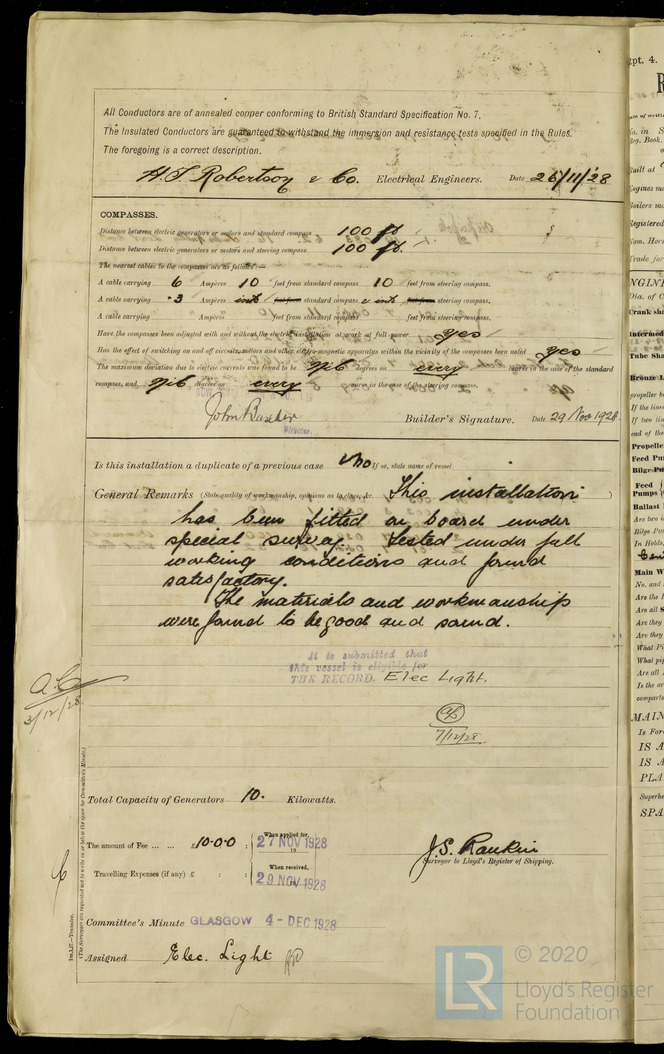 All Conductors are of annealed copper conforming to British Standard Specification No. 7.
The Insulated Conductors are guaranteed to withstand the immersion and resistance tests specified in the Rules.
The foregoing is a correct description.
H.T. Robertson & Co. Electrical Engineers. Date 26/11/28
COMPASSES.
Distance between electric generators or motors and standard compass 100 ft.
Distance between electric generators or motors and steering compass 100 ft.
The nearest cables to the compasses are as follows:—
A cable carrying 6 Ampères 10 feet from standard compass 10 feet from steering compass.
A cable carrying .3 Ampères into feet from standard compass & into feet from steering compass.
A cable carrying Ampères feet from standard compass feet from steering compass.
Have the compasses been adjusted with and without the electric installation at work at full power yes
Has the effect of switching on and off circuits, motors and other electro-magnetic apparatus within the vicinity of the compasses been noted yes
The maximum deviation due to electric currents was found to be nil degrees on every course in the case of the standard
compass, and nil degrees on every course in the case of the steering compass.
Director.
Builder's Signature. Date 29 Nov 1928.
Is this installation a duplicate of a previous case no If so, state name of vessel
General Remarks (State quality of workmanship, opinions as to class, &c. This installation
has been fitted on board under
special survey. Tested under full
working conditions and found
satisfactory.
The materials and workmanship
were found to be good and sound.
It is submitted that
this vessel is eligible for
THE RECORD. Elec Light.
7/12/28.
3/12/28
Total Capacity of Generators 10. Kilowatts.
The amount of Fee ... ... £10-0-0 : When applied for, 27 NOV 1928
Travelling Expenses (if any) £ : : When received, 29 NOV 1928
J.S. Rankin
Surveyor to Lloyd's Register of Shipping.
Committee's Minute GLASGOW 4 - DEC 1928
Assigned Elec. Light
© 2020
LR
Lloyd's Register
Foundation